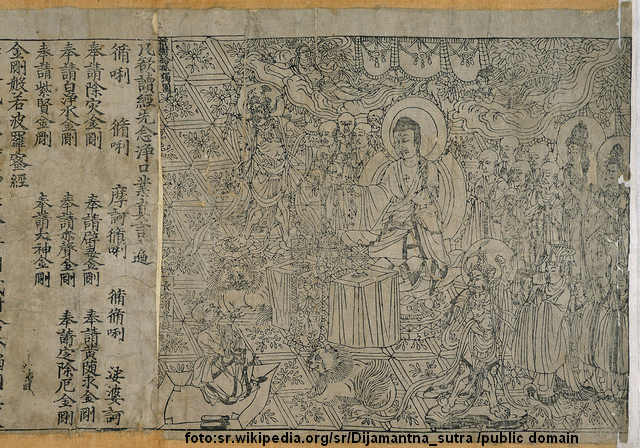 祇樹給孤獨園
凡欲讀經先念淨口業真言一遍
脩唎 脩唎 摩訶脩唎 脩脩唎 娑婆訶
奉請除灾金剛 奉請辟毒金剛 奉請黃隨求金剛
奉請白淨水金剛 奉請赤聲金剛 奉請定除厄金剛
奉請紫賢金剛 奉請大神金剛
金剛般若波羅蜜經
foto:sr.wikipedia.org/sr/Dijamantna_sutra /public domain